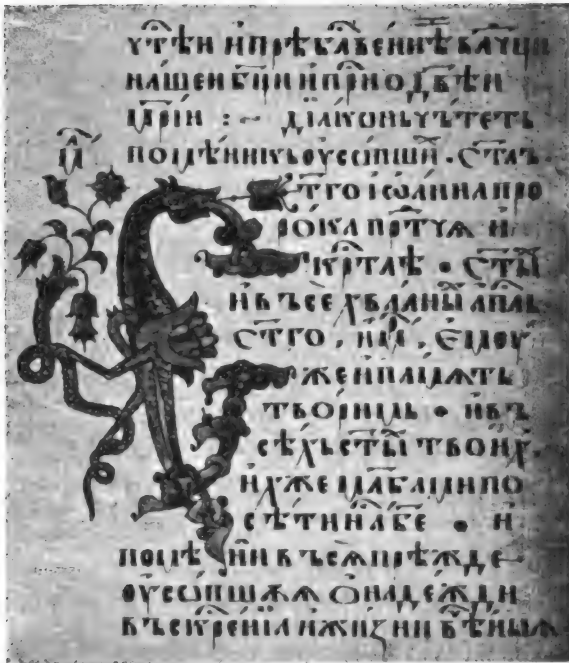 ч͠тѣи и прѣблⷭ҇вен҄нѣи влⷣчци
нашен бци и прⷭ҇нодв҃ѣи
мр҃іи :~ діꙗконьчьтеть
помѣнникьоусопшⷯи · ст҃аⷢ
ст҃го іѡанна про
рока прⷣтчѧ и
крⷭ҇тлѣ · ст҃ыⷯ
и въсехвалныⷯ ап҃лъ
ст҃го, им҃к, емоу
же и памѧть
творимь · и въ
сѣхь ст҃ыⷯ твоиⷯ ·
ихже м҃лбами по
сѣти на б҃е · и
помѣни въсѧ прѣжде
оусопшѫѧ о надежди
въскр҃сеніа и жизни вѣ҃чныѧ